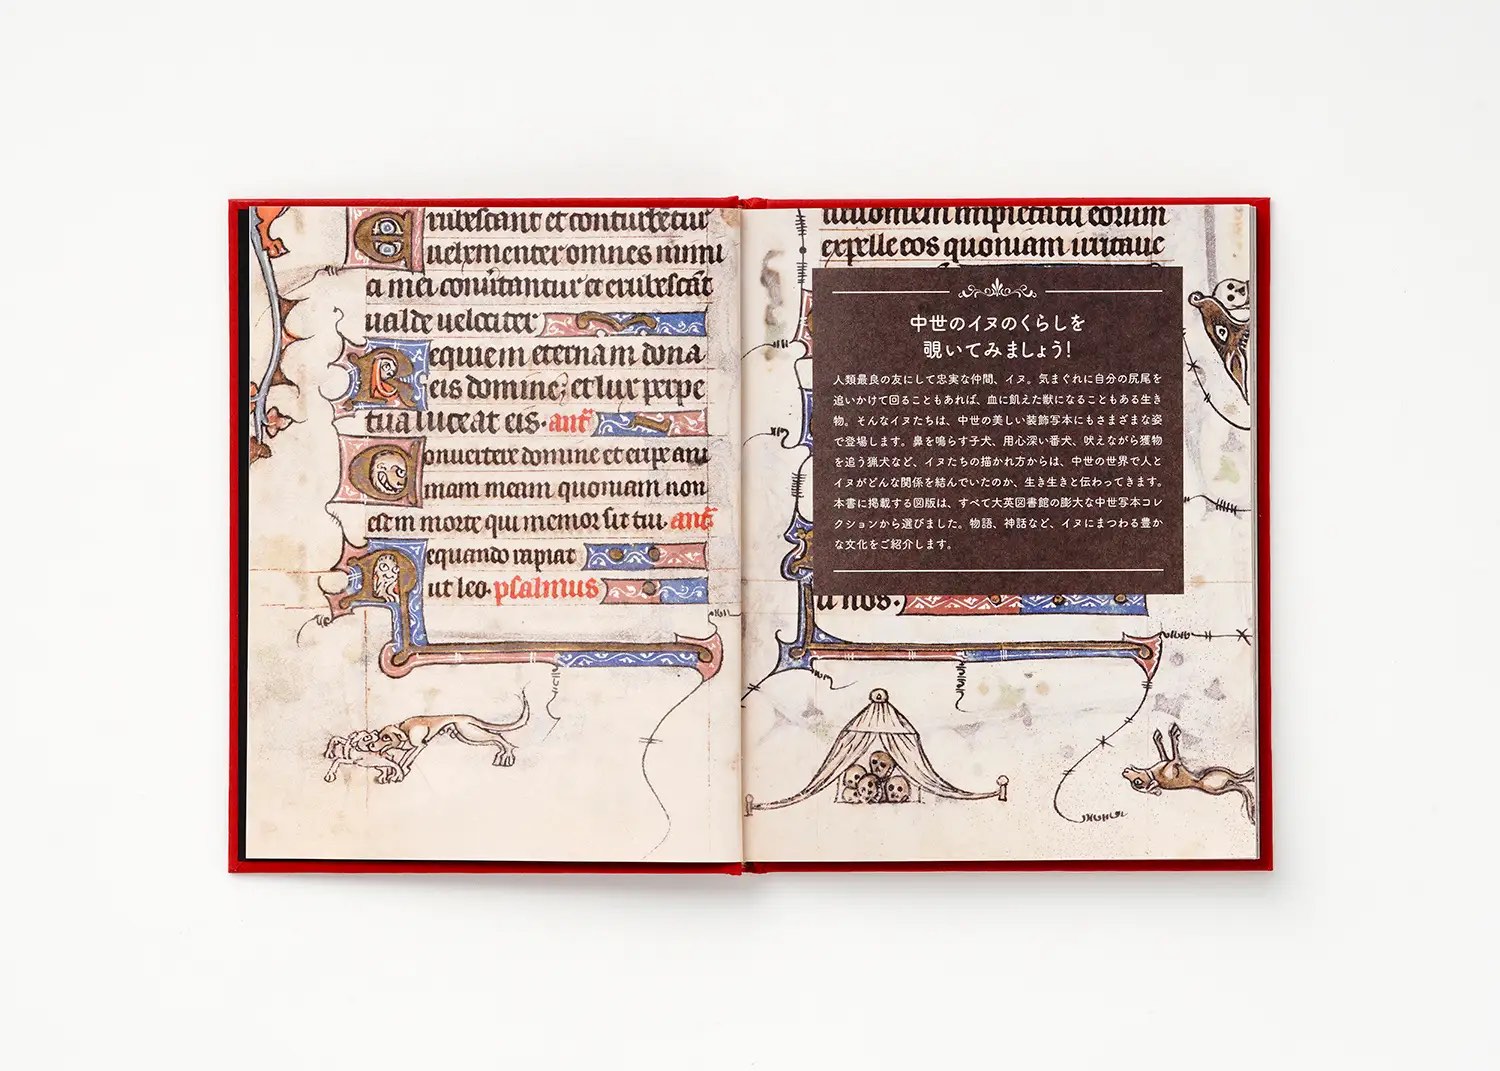 Erubescant et conturbentur
vehementer omnes inimi
ci mei convertantur et erubescant
valde velociter
Requiem eternam dona
eis domine; et lux perpe
tua luceat eis. ant
Convertere domine et eripe ani
mam meam quoniam non
est in morte qui memor sit tui. ant
Nequando rapiat
ut leo. psalmus
impietatu eorum
expelle eos quoniam irritave
中世のイヌのくらしを
覗いてみましょう!
人類最良の友にして忠実な仲間、イヌ。気まぐれに自分の尻尾を
追いかけて回ることもあれば、血に飢えた獣になることもある生き
物。そんなイヌたちは、中世の美しい装飾写本にもさまざまな姿
で登場します。鼻を鳴らす子犬、用心深い番犬、吠えながら獲物
を追う猟犬など、イヌたちの描かれ方からは、中世の世界で人と
イヌがどんな関係を結んでいたのか、生き生きと伝わってきます。
本書に掲載する図版は、すべて大英図書館の膨大な中世写本コレ
クションから選びました。物語、神話など、イヌにまつわる豊か
な文化をご紹介します。
nos.